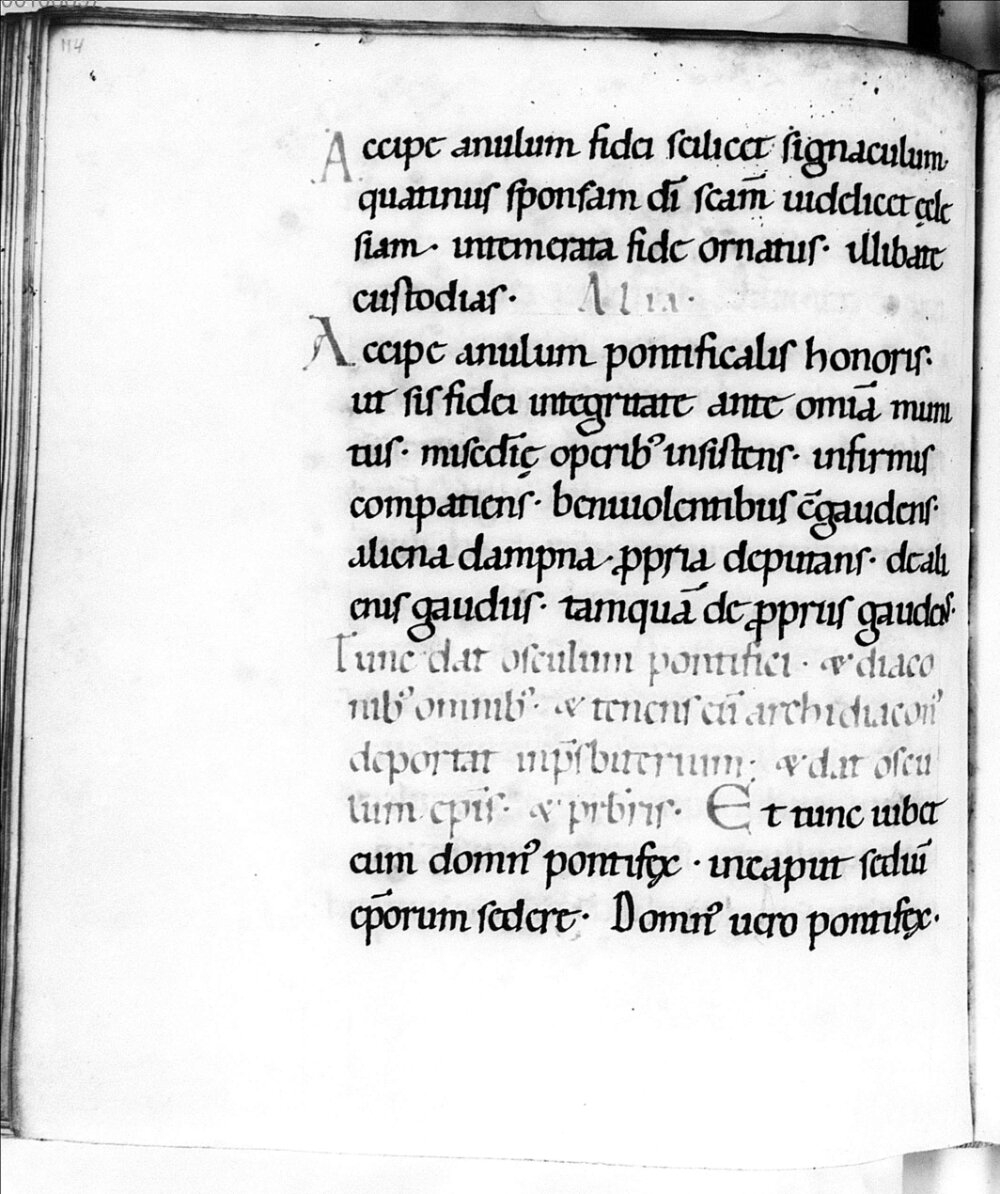 114
Accipe anulum fidei scilicet signaculum
quatinus sponsam dī scam̄ uidelicet ęcle
siam · intemerata fide ornatus · illibate
custodias · Alia ·
Accipe anulum pontificalis honoris ·
ut sis fidei integritate ante omīa muni
tus · misc̄dię operibꝰ insistens · infirmis
compatiens · beniuolentibus c̄gaudens ·
aliena dampna · ꝓpria deputans · de ali
enis gaudiis · tamquā de ꝓpriis gaudens ·
Tunc dat osculum pontifici · & diaco
nibꝰ omnibꝰ · & tenens eū archidiaconꝰ
deportat in pr̄sbiterium ; & dat oscu
lum ep̄is · & prbiris · Et tunc iubet
eum domnꝰ pontifęx · in caput sediū
ep̄orum sedere · Domnꝰ uero pontifęx ·